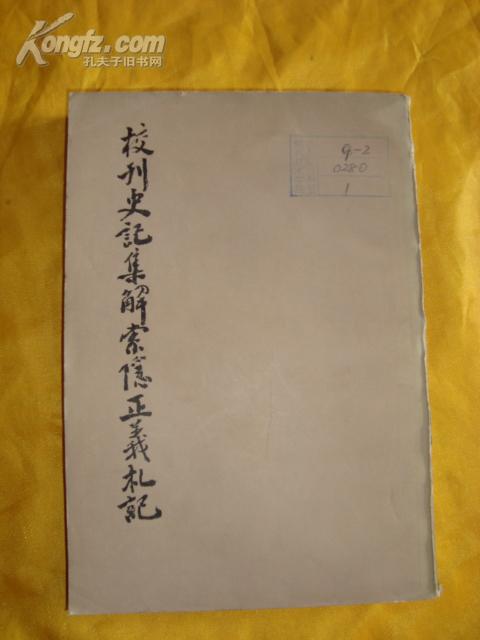 Kongfz.com
孔夫子旧书网
校刊史記集解索隱正義札記
9-2
0280
1